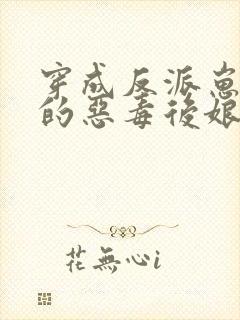 穿成反派崽
的惡毒後娘
花無心i